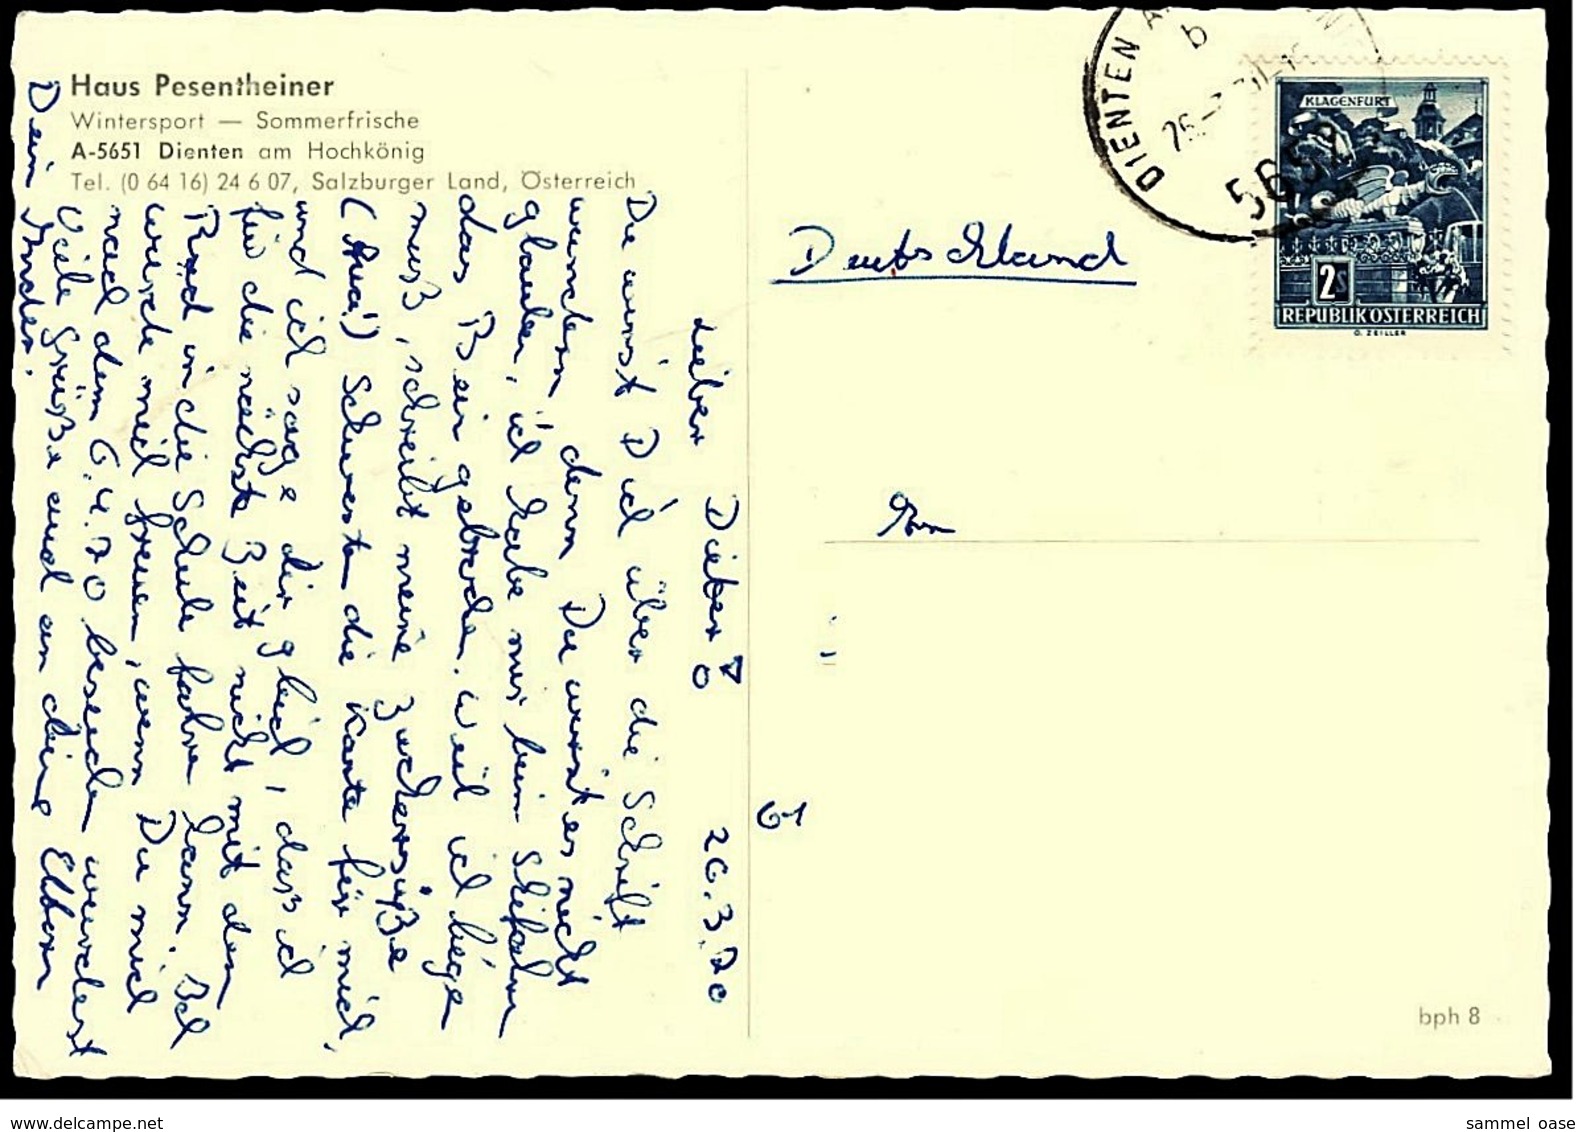 Haus Pesentheiner
Wintersport — Sommerfrische
A-5651 Dienten am Hochkönig
Tel. (0 64 16) 24 6 07, Salzburger Land, Österreich
Lieber Dieter! 26.3.70
Du wirst Dich über die Schrift
wundern, denn Du wirst es nicht
glauben, ich habe mir beim Skifahrn
das Bein gebrochen. Weil ich liege
muß, schreibt meine zuckersüße
(Aua!) Schwester die Karte für mich,
und ich sage dir gleich, dass ich
für die nächste Zeit nicht mit dem
Rad in die Schule fahrn kann. Ich
würde mich freuen, wenn Du mich
nach dem 6.4.70 besuchen würdest
Viele Grüße auch an deine Eltern
Dein
DIENTEN A
b
26.-3.
5652
KLAGENFURT
2S
REPUBLIK ÖSTERREICH
O. ZEILLER
Deutschland
An
61
bph 8
www.delcampe.net
sammel oase